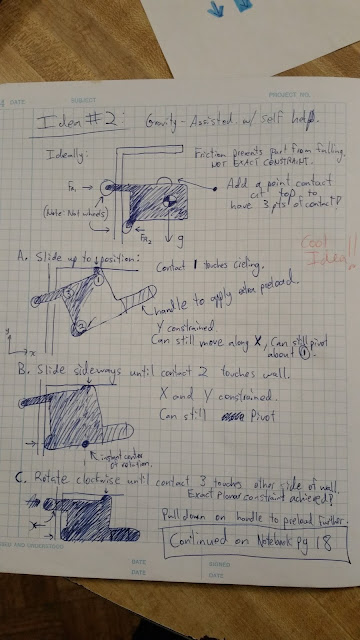 4 DATE SUBJECT PROJECT NO.
Idea #2: Gravity-Assisted w/ self help.
Ideally:
Friction prevents part from falling.
NOT EXACT CONSTRAINT.
FR1 →
(Note: Not wheels)
FR2
g
Add a point contact
at top to
have 3 pts of contact!
Cool
Idea!!
A. Slide up to position:
Contact 1 touches Cieling.
1
2
3
handle to apply extra preload.
Y constrained
Can still move along X, Can still pivot
about 1.
y
x
B. Slide sideways until contact 2 touches wall.
X and Y constrained.
Can still Pivot
instant center
of rotation.
C. Rotate clockwise until contact 3 touches other side of wall.
Exact Planar constraint achieved!
Pull down on handle to preload further.
Continued on Notebook pg 18
AND UNDERSTOOD
DATE SIGNED
DATE DATE